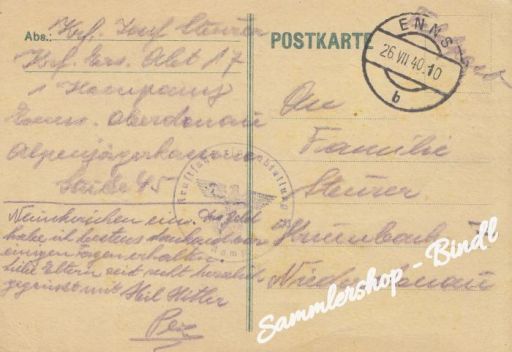 Abs.: Krf. Josef Steurer
Krf. Ers. Abt 17
1 Kompanie
Enns. Oberdonau
Alpenjägerkaserne
Stube 45
Neunkirchen ein. Das Geld
habe ich bestens dankend vor
einigen Tagen erhalten.
Liebe Eltern seit recht herzlich
gegrüsst mit Heil Hitler
POSTKARTE
ENNS
26 VII 40 10
b
An
Familie
Steurer
Niederdonau
Sammlershop - Bindl